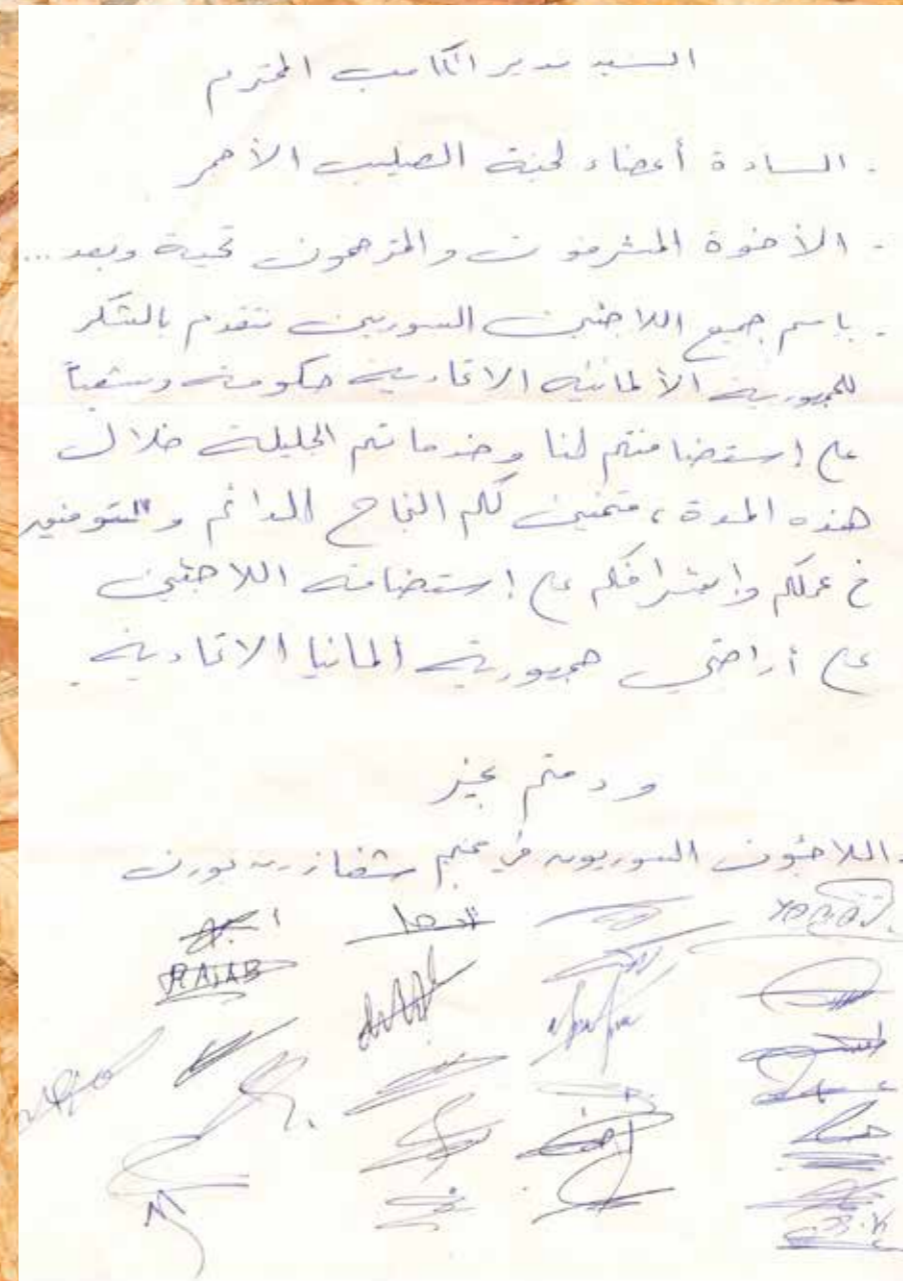 السيد مدير الكامب المحترم
- السادة أعضاء لجنة الصليب الأحمر
- الأخوة المشرفون والمترجمون تحية وبعد...
- باسم جميع اللاجئين السوريين نتقدم بالشكر
للجمهورية الألمانية الاتحادية حكومة وشعباً
على إستضافتهم لنا وخدماتهم الجليلة خلال
هذه المدة، متمنين لكم النجاح الدائم والتوفيق
في عملكم وإشرافكم على إستضافة اللاجئين
على أراضي جمهورية ألمانيا الاتحادية
ودمتم بخير
- اللاجئون السوريون في مخيم
RAJAB